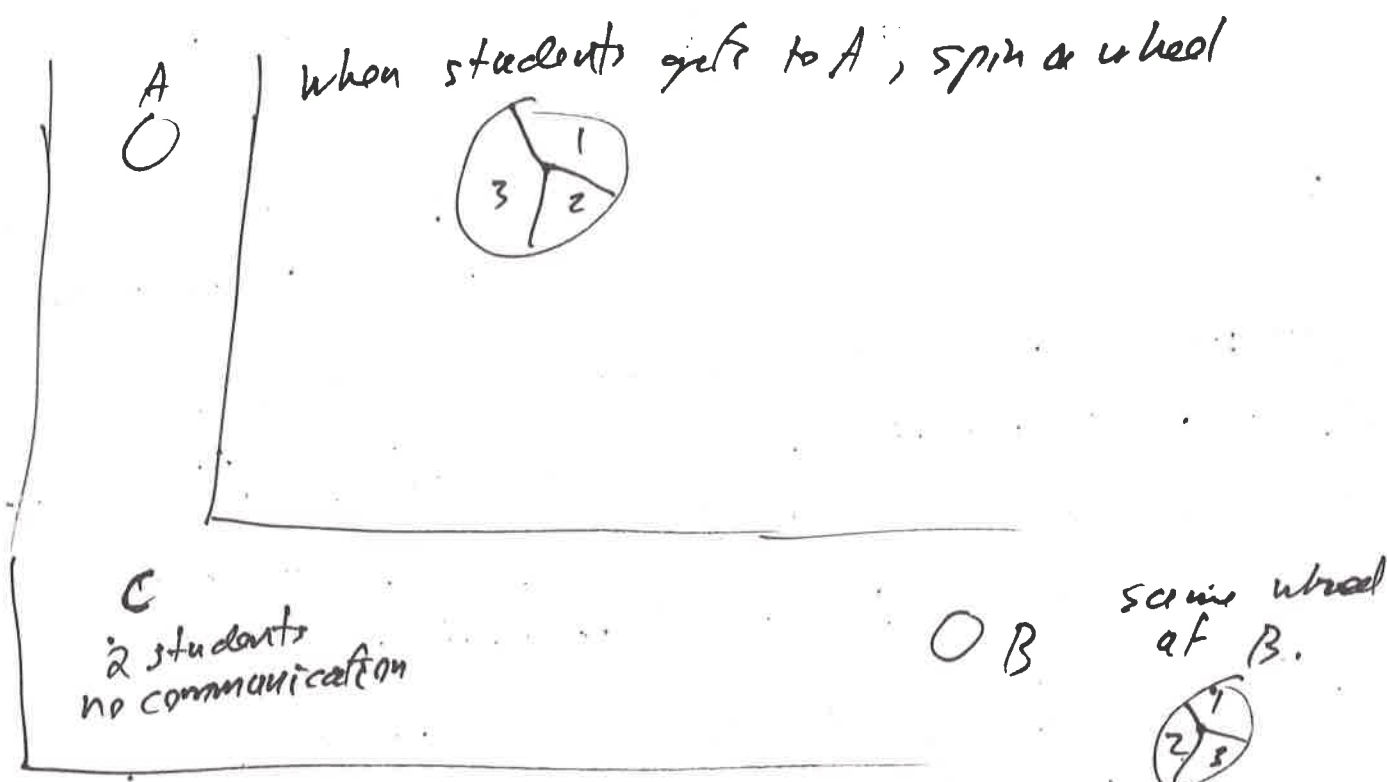 A
When students gets to A, spin a wheel
1
3 2
C
2 students
no communication
B
same wheel
at B.
1
2 3